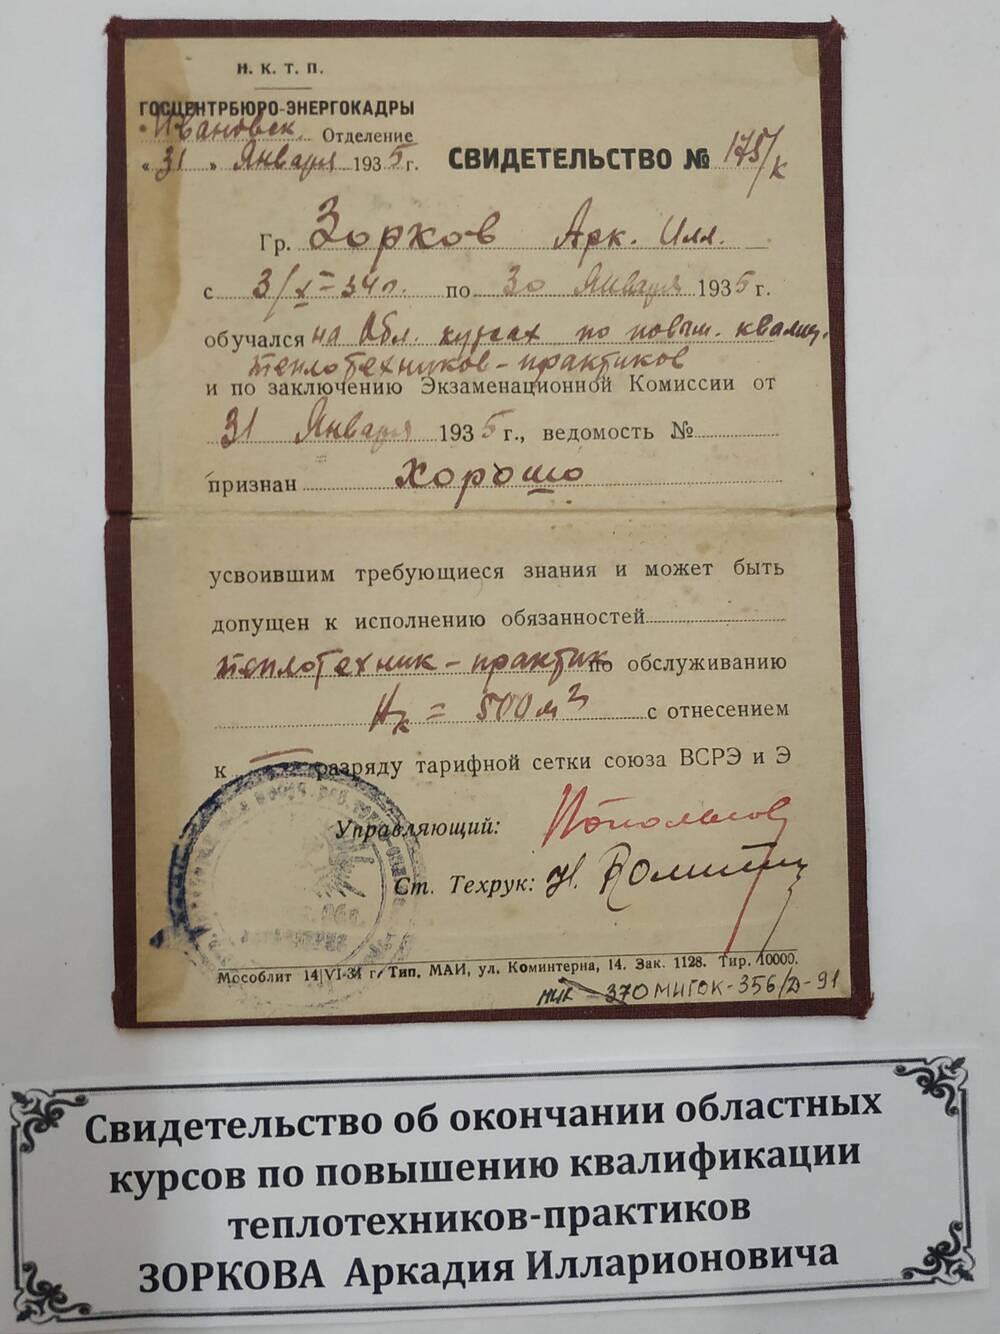 Н. К. Т. П.
ГОСЦЕНТРБЮРО-ЭНЕРГОКАДРЫ
Ивановск. Отделение
„31" Января 1935 г.
СВИДЕТЕЛЬСТВО № 175/к
Гр. Зорков Арк. Илл.
с 3/X-34г. по 30 Января 1935 г.
обучался на Обл. курсах по повыш. квалиф.
теплотехников-практиков
и по заключению Экзаменационной Комиссии от
31 Января 1935 г., ведомость №
признан хорошо
усвоившим требующиеся знания и может быть
допущен к исполнению обязанностей
теплотехник-практик по обслуживанию
Нк = 500 м2 с отнесением
к — разряду тарифной сетки союза ВСРЭ и Э
Управляющий:
Ст. Техрук: Н.
Мособлит 14/VI-34 г. Тип. МАИ, ул. Коминтерна, 14. Зак. 1128. Тир. 10000.
МИК-370 МИГОК-356/Д-91
Свидетельство об окончании областных
курсов по повышению квалификации
теплотехников-практиков
ЗОРКОВА Аркадия Илларионовича